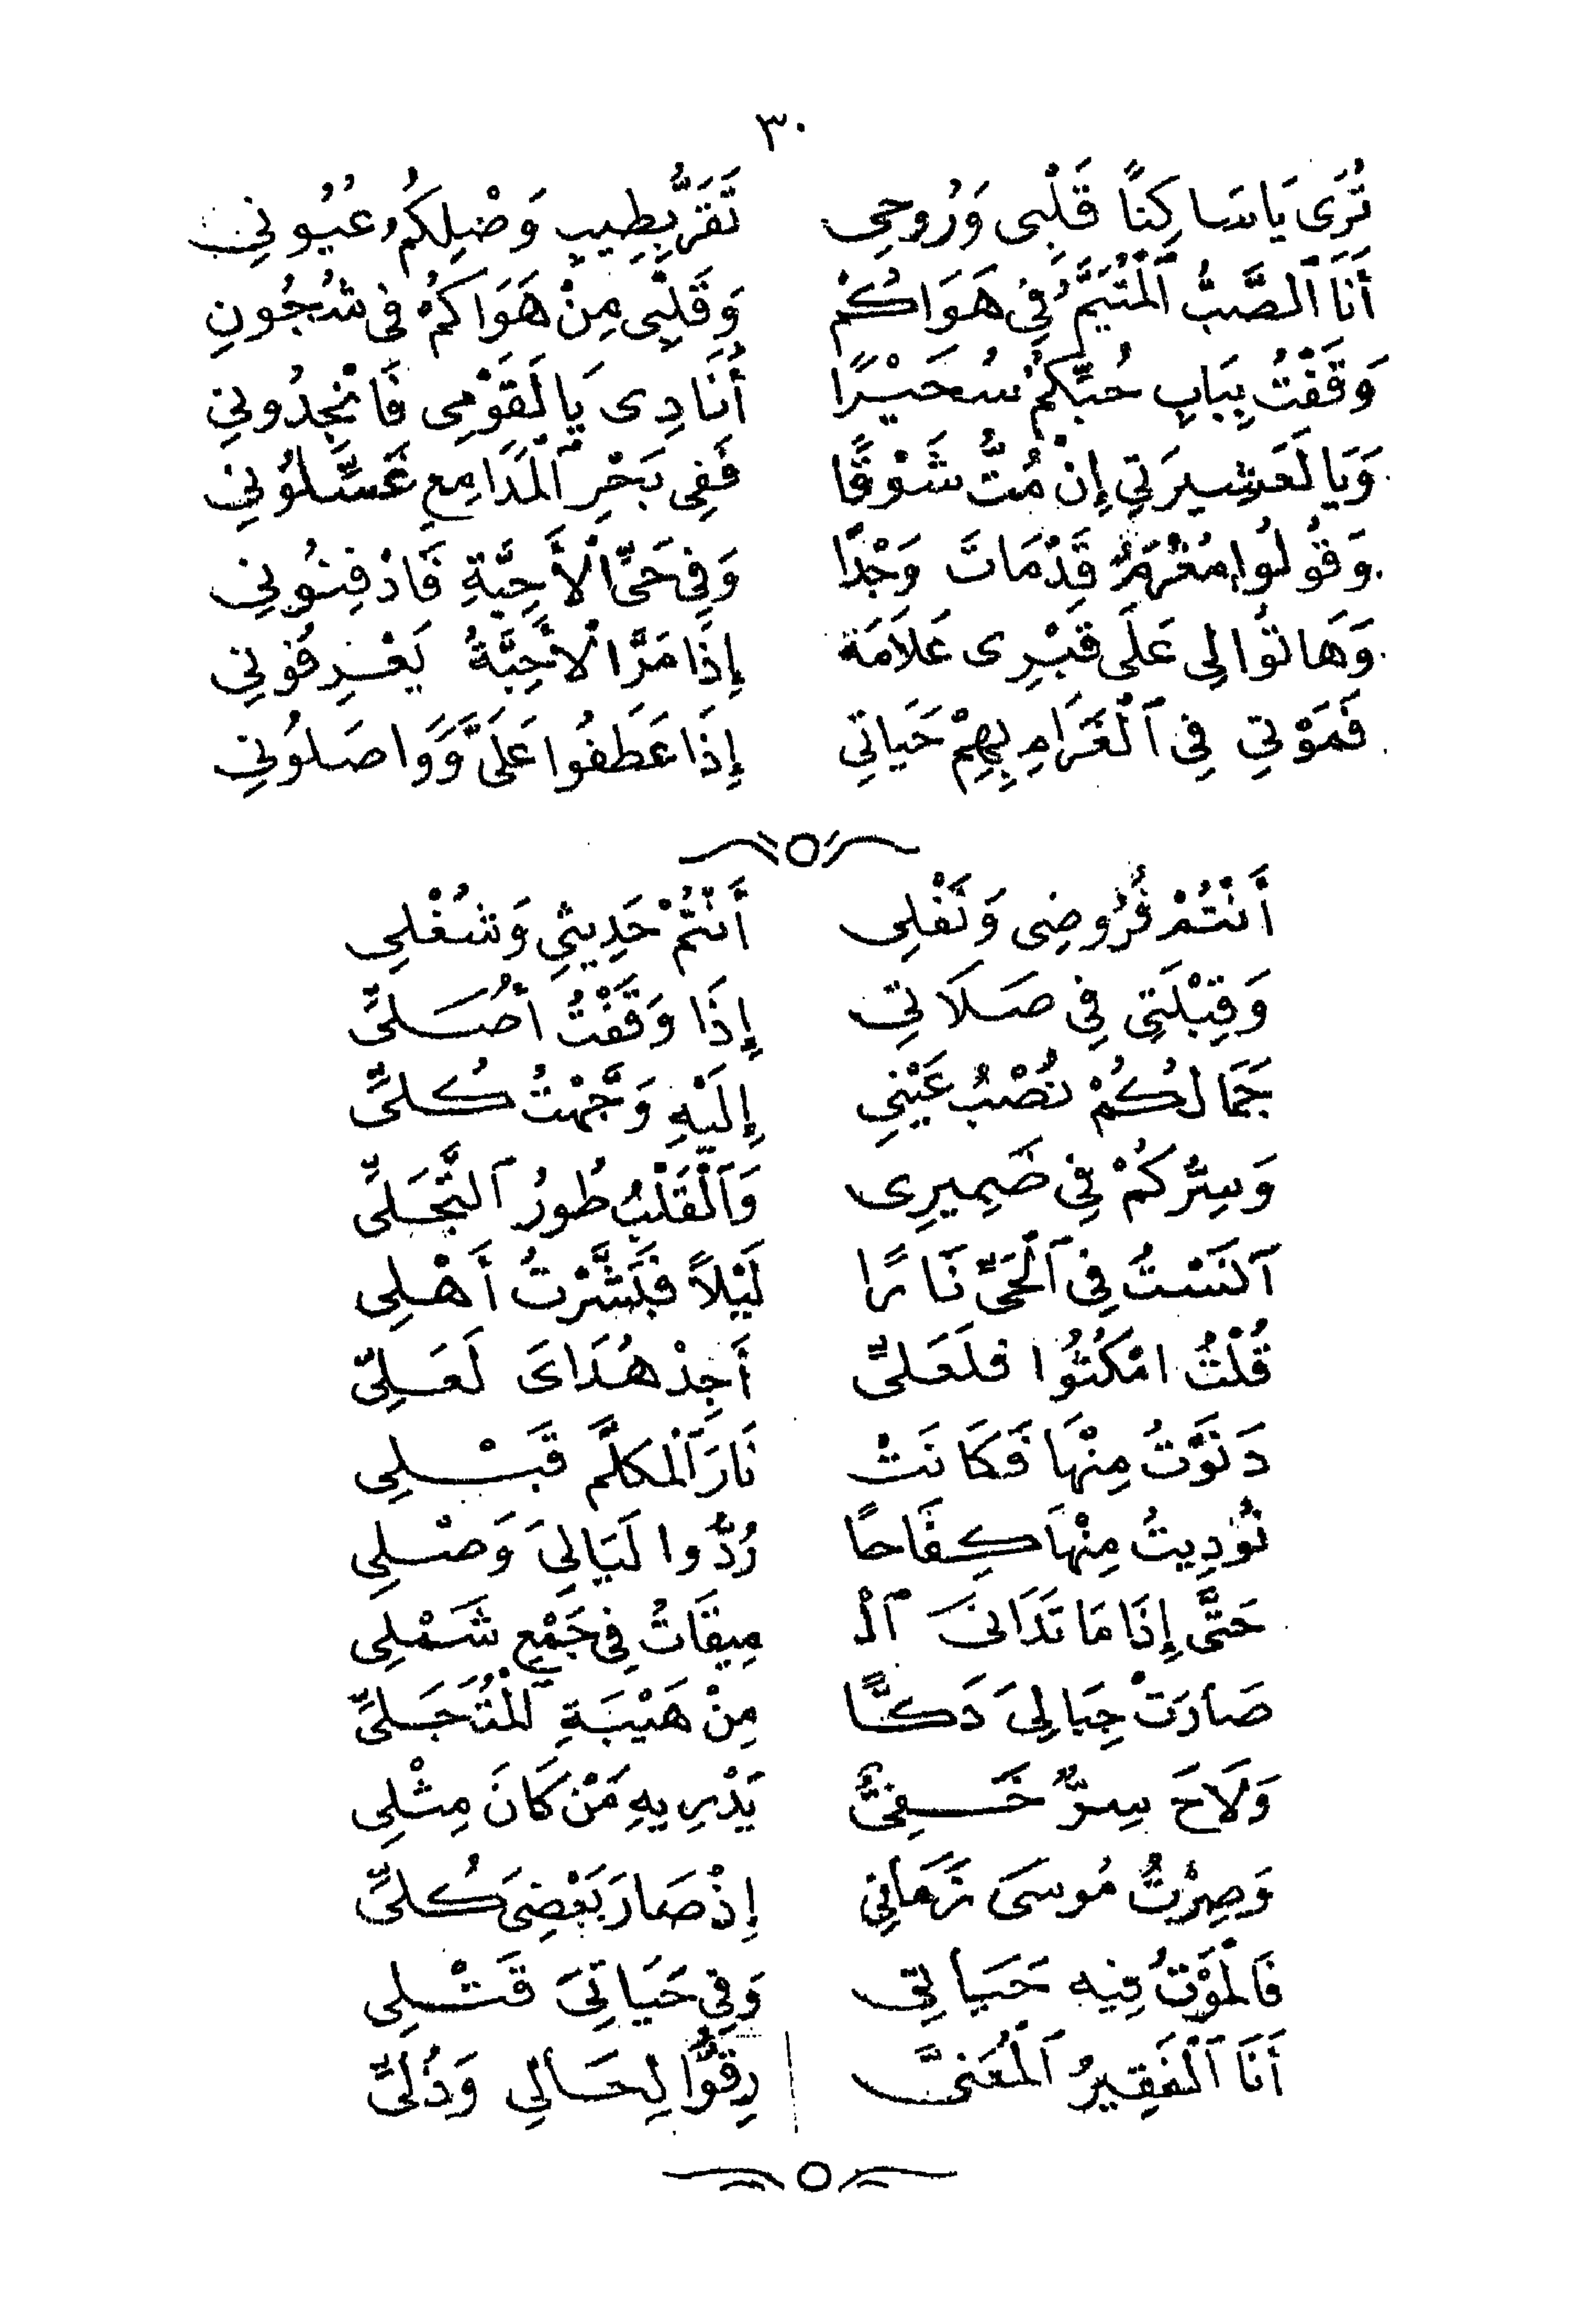 ٣٠
تُرَى يَا سَاكِنًا قَلْبِى وَرُوحِى تَقَرُّ بِطِيبِ وَصْلِكُمُ عُيُونِى
أَنَا ٱلصَّبُّ ٱلْمُتَيَّمُ فِى هَوَاكُمْ وَقَلْبِى مِنْ هَوَاكُمْ فِى شُجُونِ
وَقَفْتُ بِبَابِ حُبِّكُمْ سُحَيْرًا أُنَادِى يَا لَقَوْمِى فَانْجِدُونِى
وَيَا لَعَشِيرَتِي إِنْ مُتُّ شَوْقًا فَفِى بَحْرِ ٱلْمَدَامِعِ غَسِّلُونِى
وَقُولُوا مُغْرَمٌ قَدْ مَاتَ وَجْدًا وَفِى حَىِّ الْأَحِبَّةِ فَادْفِنُونِى
وَهَاتُوا لِى عَلَى قَبْرِى عَلَامَة إِذَا مَرَّ الْأَحِبَّةُ يَعْرِفُونِى
فَمَوْتِي فِى ٱلْغَرَامِ بِهِمْ حَيَاتِي إِذَا عَطَفُوا عَلَىَّ وَوَاصَلُونِى
أَنْتُمْ فُرُوضِى وَنَفْلِى أَنْتُمْ حَدِيثِي وَشُغْلِى
وَقِبْلَتِى فِى صَلَاتِى إِذَا وَقَفْتُ أُصَلِّى
جَمَالُكُمْ نُصْبُ عَيْنِى إِلَيْهِ وَجَّهْتُ كُلِّى
وَسِرُّكُمْ فِى ضَمِيرِى وَٱلْقَلْبُ طُورُ ٱلتَّجَلِّى
آنَسْتُ فِى ٱلْحَىِّ نَارًا لَيْلًا فَبَشَّرْتُ أَهْلِى
قُلْتُ امْكُثُوا فَلَعَلِّى أَجِدْ هُدَاىَ لَعَلِّى
دَنَوْتُ مِنْهَا فَكَانَتْ نَارَ ٱلْمُكَلَّمِ قَبْلِى
نُودِيتُ مِنْهَا كِفَاحًا رُدُّوا لَيَالِىَ وَصْلِى
حَتَّى إِذَا مَا تَدَانَى ٱلْـ مِيقَاتُ فِى جَمْعِ شَمْلِى
صَارَتْ جِبَالِىَ دَكًّا مِنْ هَيْبَةِ ٱلْمُتَجَلِّى
وَلَاحَ سِرٌّ خَفِىٌّ يَدْرِيهِ مَنْ كَانَ مِثْلِى
وَصِرْتُ مُوسَى زَمَانِي إِذْ صَارَ بَعْضِىَ كُلِّى
فَالْمَوْتُ فِيهِ حَيَاتِى وَفِى حَيَاتِىَ قَتْلِى
أَنَا ٱلْفَقِيرُ ٱلْمُعَنَّى رِقُّوا لِحَالِي وَذُلِّى